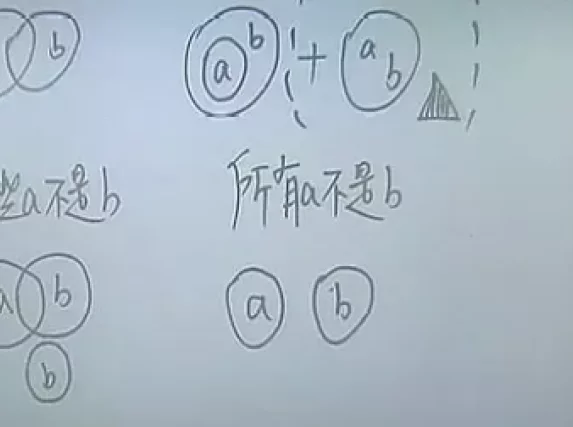 b a b + a b
a不是b 所有a不是b
b a b
b